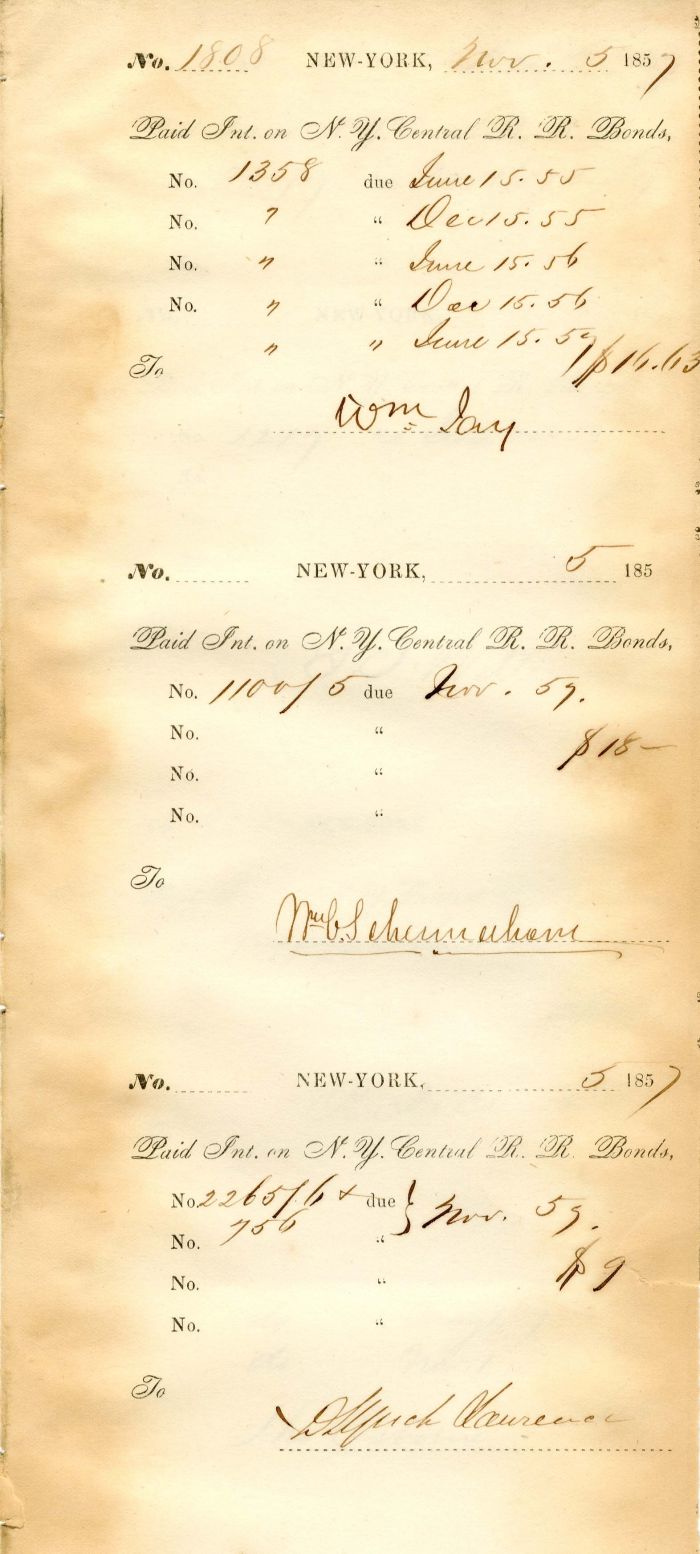 No. 1808 NEW-YORK, Nov. 5 1857
Paid Int. on N. Y. Central R. R. Bonds,
No. 1358 due June 15. 55
No. " “ Dec 15. 55
No. " “ June 15. 56
No. " “ Dec 15. 56
" " June 15. 57
To $16.63
Wm Jay
No. NEW-YORK, 5 185
Paid Int. on N. Y. Central R. R. Bonds,
No. 1100/5 due Nov. 57.
No. “
$18–
No. “
No. “
To
Wm C. Schermerhorn
No. NEW-YORK, 5 1857
Paid Int. on N. Y. Central R. R. Bonds,
No. 2265/6 + due } Nov. 57.
No. 756 “
No. “ $9
No. “
To
Lawrence